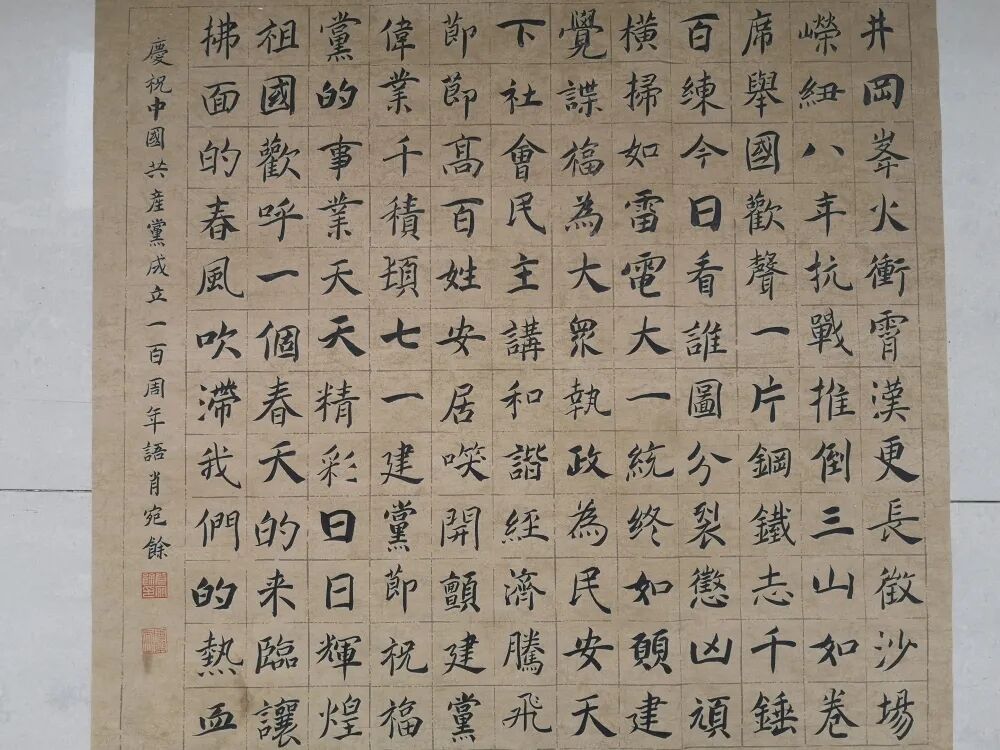 井岡峯火衝霄漢更長徵沙場
嶸紐八年抗戰推倒三山如卷
席舉國歡聲一片鋼鐵志千錘
百練今日看誰圖分裂懲凶頑
橫掃如雷電大一統終如願建
覺諜福為大眾執政為民安天
下社會民主講和諧經濟騰飛
節節高百姓安居笑開顏建黨
偉業千積頃七一建黨節祝福
黨的事業天天精彩日日輝煌
祖國歡呼一個春天的来臨讓
拂面的春風吹滯我們的熱血
慶祝中國共産黨成立一百周年語肖宛餘